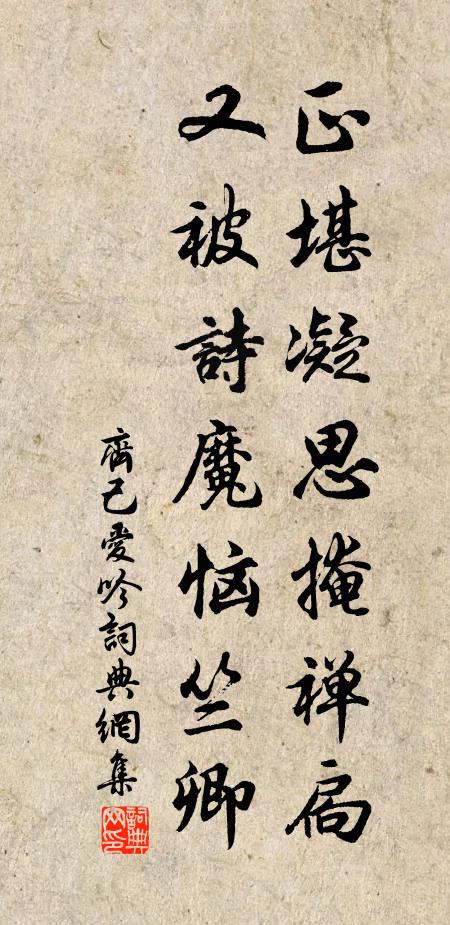 正堪凝思掩禅扃
又被詩魔恼竺卿
齊己愛吟詞典網集
詞典
网印